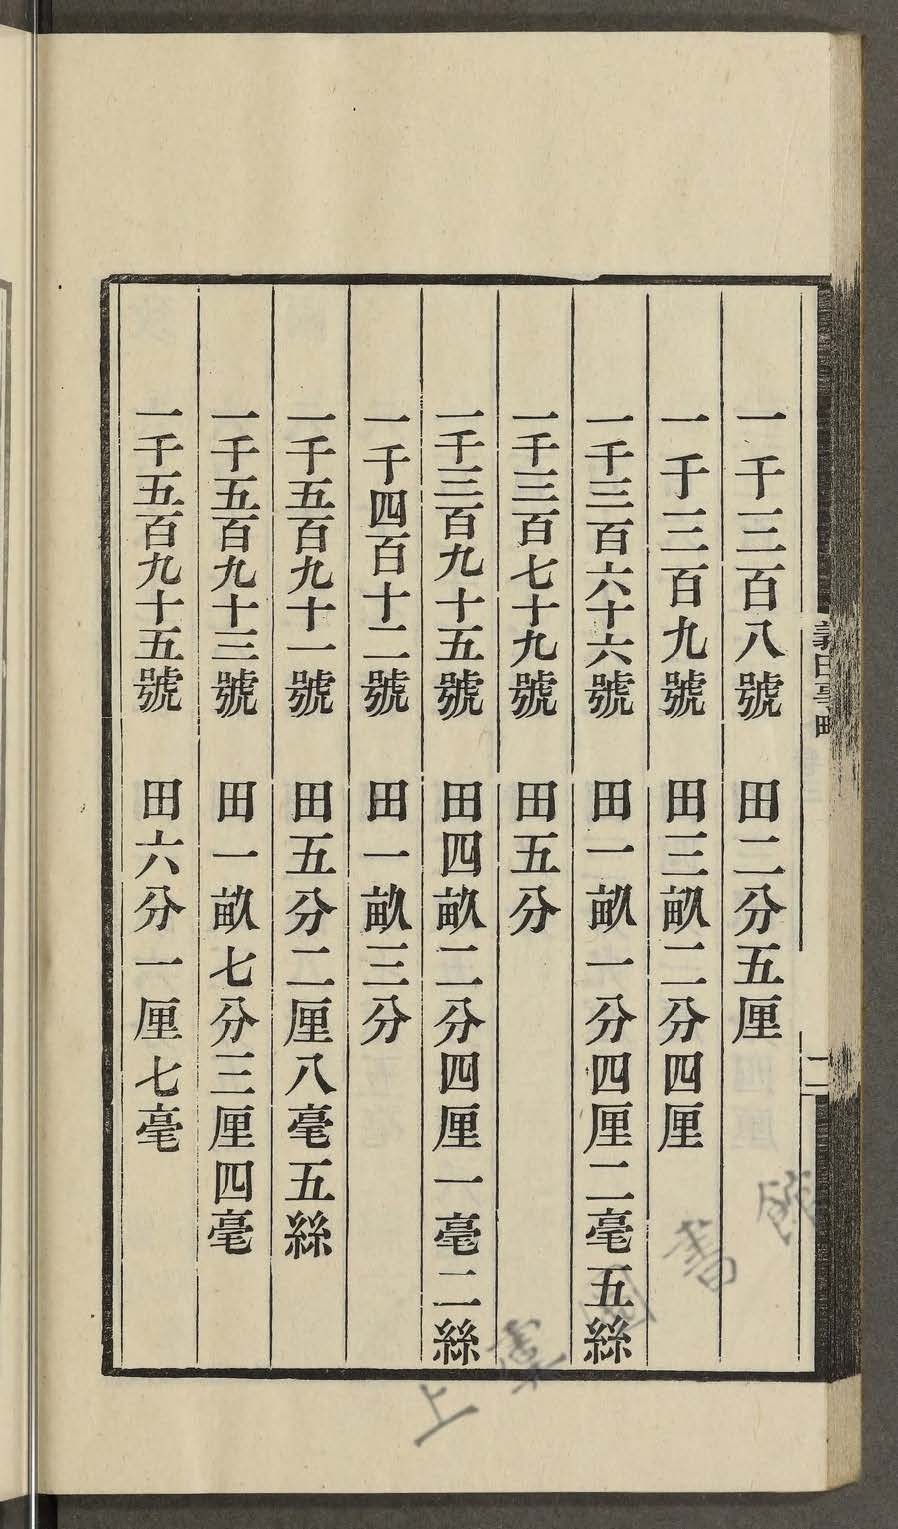 一千三百八號　田二分五厘
一千三百九號　田三畝二分四厘
一千三百六十六號　田一畝一分四厘二毫五絲
一千三百七十九號　田五分
一千三百九十五號　田四畝二分四厘一毫二絲
一千四百十二號　田一畝三分
一千五百九十一號　田五分二厘八毫五絲
一千五百九十三號　田一畝七分三厘四毫
一千五百九十五號　田六分一厘七毫
義田事略
二
上虞圖書館